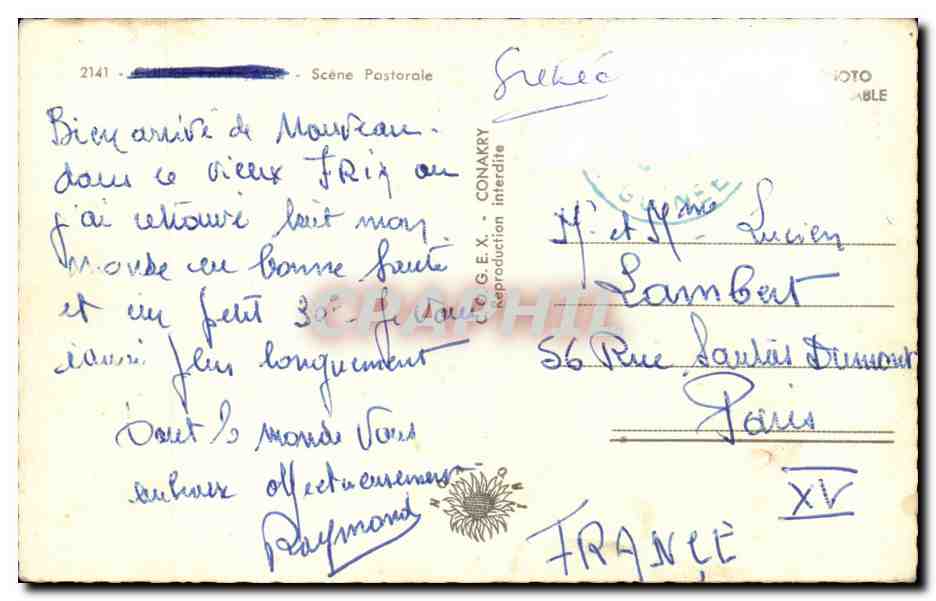 2141 - - Scène Pastorale
Bien arrivé de Nouveau
dans ce vieux FRIA ou
j'ai retrouvé tout mon
monde en bonne Santé
et un petit 30° - Je vous
écrirai plus longuement
Tout le monde Vous
embrasse affectueusement
Raymond
C.O.G.E.X. - CONAKRY
Reproduction interdite
HOTO
ABLE
GUINÉE
Mr et Mme Lucien
Lambert
56 Rue Santos Dumont
Paris
XV
FRANCE
CPAPHIL